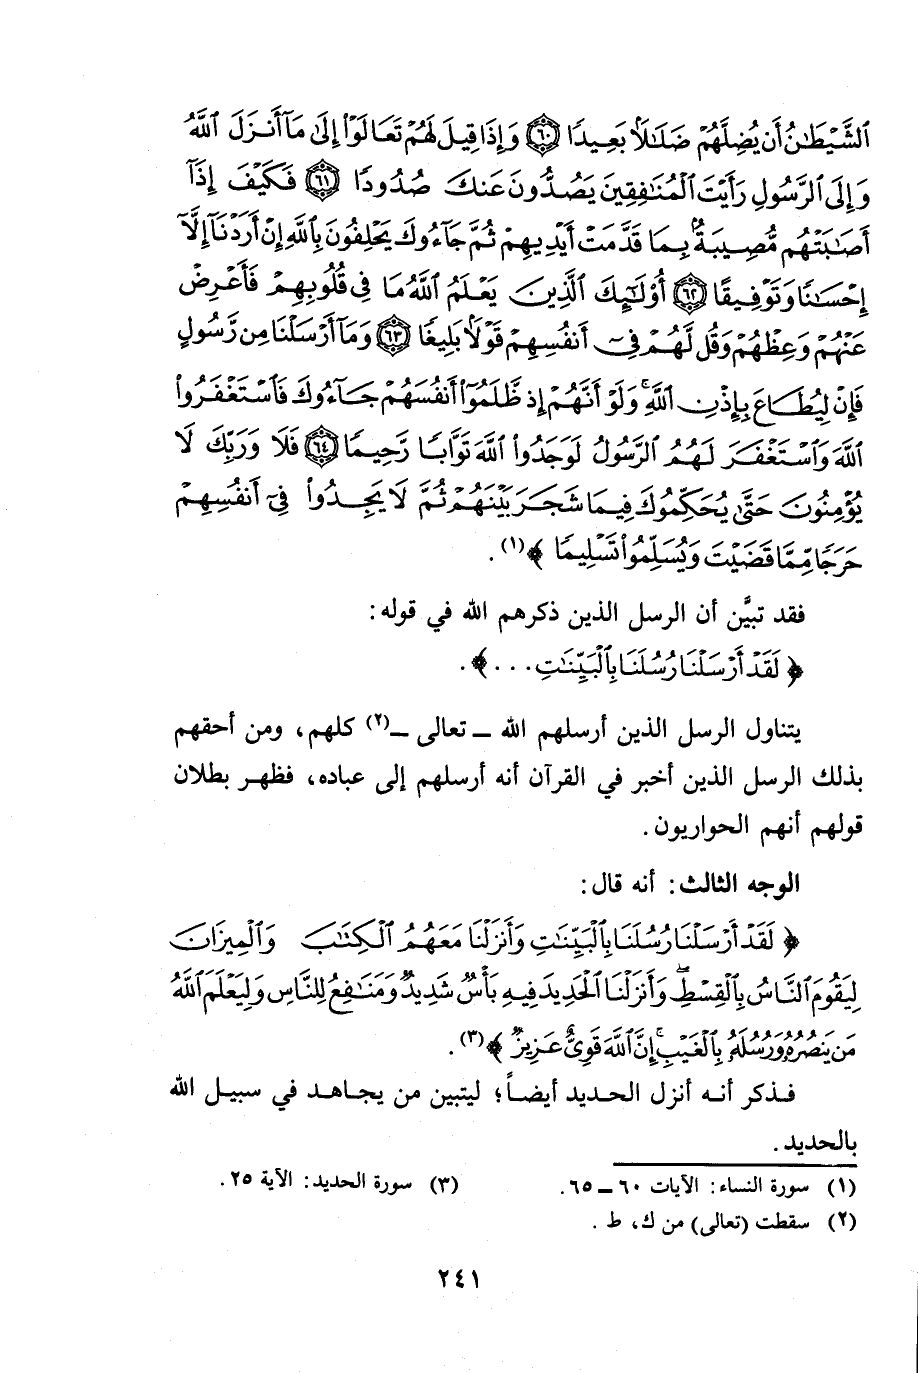 ٱلشَّيْطَٰنُ أَن يُضِلَّهُمْ ضَلَٰلًۢا بَعِيدًا ۝٦٠ وَإِذَا قِيلَ لَهُمْ تَعَالَوْا۟ إِلَىٰ مَآ أَنزَلَ ٱللَّهُ
وَإِلَى ٱلرَّسُولِ رَأَيْتَ ٱلْمُنَٰفِقِينَ يَصُدُّونَ عَنكَ صُدُودًا ۝٦١ فَكَيْفَ إِذَآ
أَصَٰبَتْهُم مُّصِيبَةٌۢ بِمَا قَدَّمَتْ أَيْدِيهِمْ ثُمَّ جَآءُوكَ يَحْلِفُونَ بِٱللَّهِ إِنْ أَرَدْنَآ إِلَّآ
إِحْسَٰنًا وَتَوْفِيقًا ۝٦٢ أُو۟لَٰٓئِكَ ٱلَّذِينَ يَعْلَمُ ٱللَّهُ مَا فِى قُلُوبِهِمْ فَأَعْرِضْ
عَنْهُمْ وَعِظْهُمْ وَقُل لَّهُمْ فِىٓ أَنفُسِهِمْ قَوْلًۢا بَلِيغًا ۝٦٣ وَمَآ أَرْسَلْنَا مِن رَّسُولٍ
فَإِنْ لِيُطَاعَ بِإِذْنِ ٱللَّهِ ۚ وَلَوْ أَنَّهُمْ إِذ ظَّلَمُوٓا۟ أَنفُسَهُمْ جَآءُوكَ فَٱسْتَغْفَرُوا۟
ٱللَّهَ وَٱسْتَغْفَرَ لَهُمُ ٱلرَّسُولُ لَوَجَدُوا۟ ٱللَّهَ تَوَّابًا رَّحِيمًا ۝٦٤ فَلَا وَرَبِّكَ لَا
يُؤْمِنُونَ حَتَّىٰ يُحَكِّمُوكَ فِيمَا شَجَرَ بَيْنَهُمْ ثُمَّ لَا يَجِدُوا۟ فِىٓ أَنفُسِهِمْ
حَرَجًا مِّمَّا قَضَيْتَ وَيُسَلِّمُوا۟ تَسْلِيمًا ﴾(١).
فقد تبيَّن أن الرسل الذين ذكرهم الله في قوله:
﴿ لَقَدْ أَرْسَلْنَا رُسُلَنَا بِٱلْبَيِّنَٰتِ... ﴾.
يتناول الرسل الذين أرسلهم الله ــ تعالى ــ(٢) كلهم، ومن أحقهم
بذلك الرسل الذين أخبر في القرآن أنه أرسلهم إلى عباده، فظهر بطلان
قولهم أنهم الحواريون.
الوجه الثالث: أنه قال:
﴿ لَقَدْ أَرْسَلْنَا رُسُلَنَا بِٱلْبَيِّنَٰتِ وَأَنزَلْنَا مَعَهُمُ ٱلْكِتَٰبَ وَٱلْمِيزَانَ
لِيَقُومَ ٱلنَّاسُ بِٱلْقِسْطِ ۖ وَأَنزَلْنَا ٱلْحَدِيدَ فِيهِ بَأْسٌ شَدِيدٌ وَمَنَٰفِعُ لِلنَّاسِ وَلِيَعْلَمَ ٱللَّهُ
مَن يَنصُرُهُۥ وَرُسُلَهُۥ بِٱلْغَيْبِ ۚ إِنَّ ٱللَّهَ قَوِىٌّ عَزِيزٌ ﴾(٣).
فـذكر أنـه أنزل الحـديد أيضـاً؛ ليتبين من يجـاهـد في سبيـل الله
بالحديد.
(١) سورة النساء: الآيات ٦٠ ــ ٦٥.
(٣) سورة الحديد: الآية ٢٥.
(٢) سقطت (تعالى) من ك، ط.
٢٤١